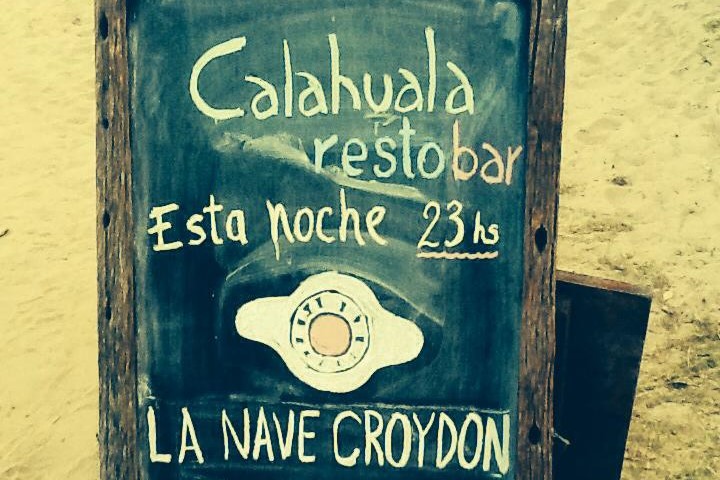 Calahuala
restobar
Esta noche 23 hs
LA NAVE CROYDON